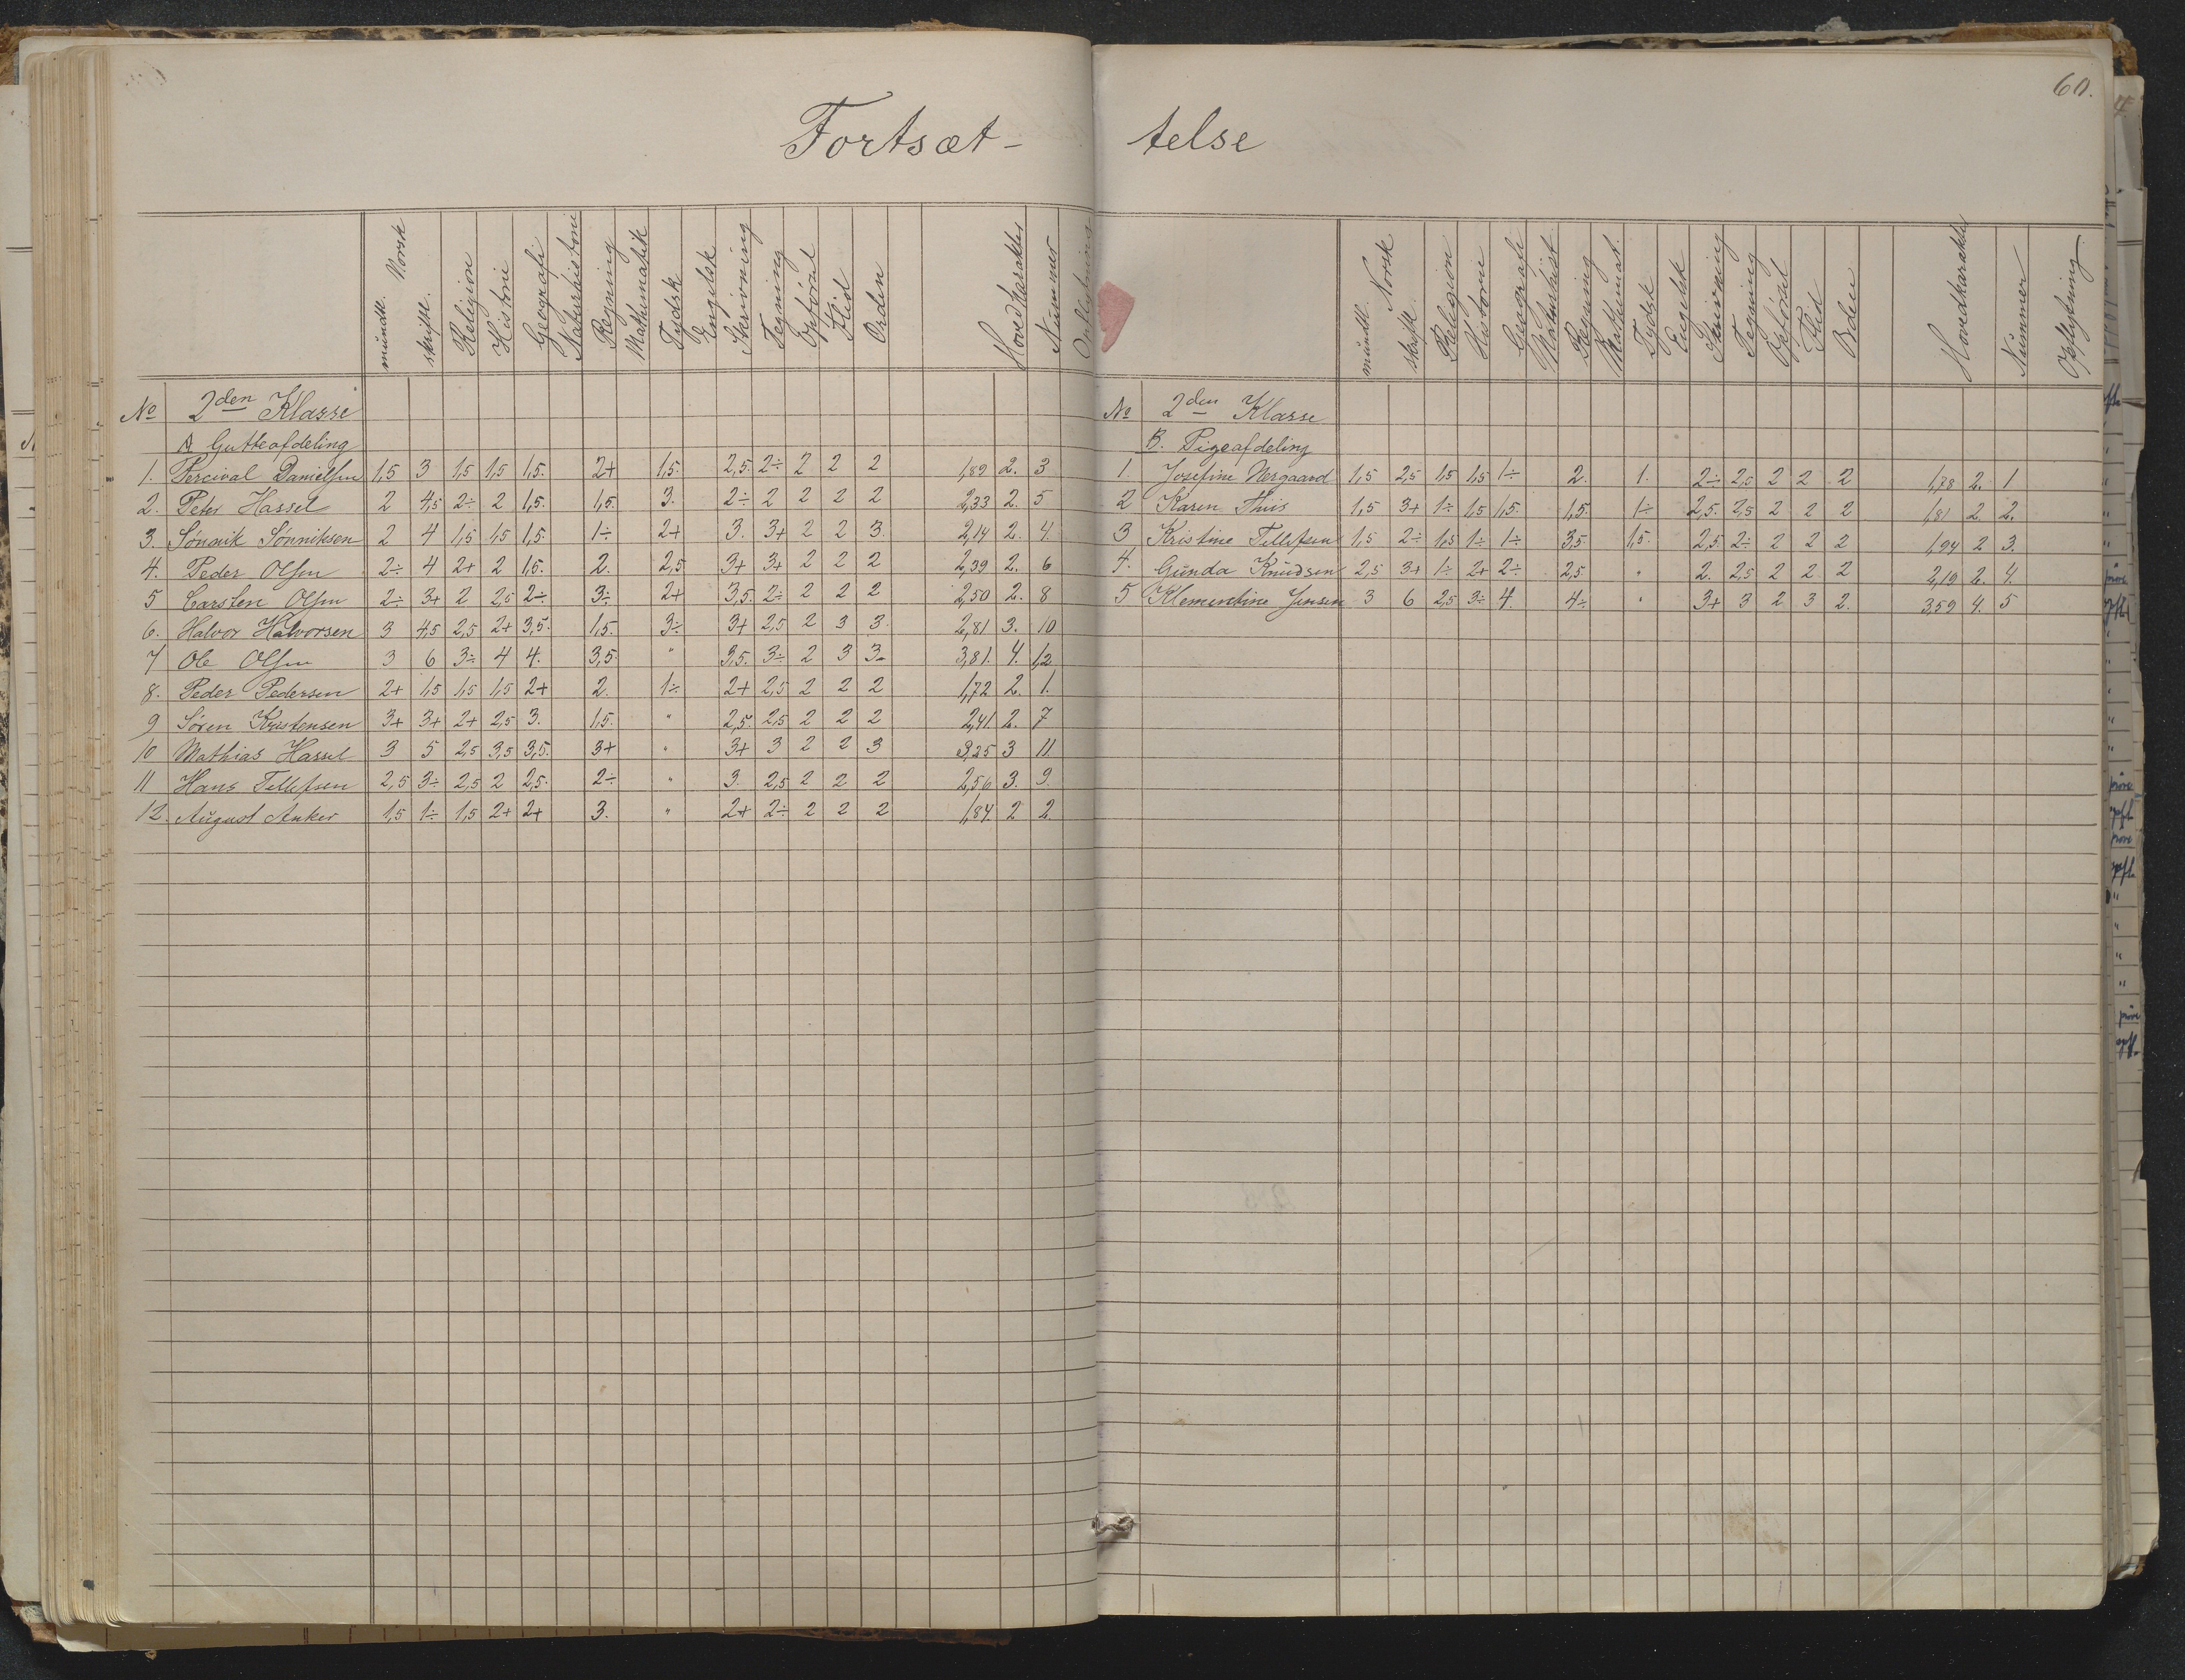 60.
Fortsæt- telse
Norsk mündtl. skriftl. Religion Historie Geografi Naturhistorie Regning Mathematik Tydsk Engelsk Skrivning Tegning Opførsel Flid Orden Hovedkarakter Nummer
No 2den Klasse
A. Gutteafdeling
1. Percival Danielsen 1,5 3 1,5 1,5 1,5. 2+ 1,5. 2,5. 2÷ 2 2 2 1,89 2. 3
2. Peter Hassel 2 4,5 2÷ 2 1,5. 1,5. 3. 2÷ 2 2 2 2 2,33 2. 5
3. Sønnik Sønniksen 2 4 1,5 1,5 1,5. 1÷ 2+ 3. 3+ 2 2 3. 2,14 2. 4
4. Peder Olsen 2÷ 4 2+ 2 1,5. 2. 2,5 3+ 3+ 2 2 2 2,39 2. 6
5 Carsten Olsen 2÷ 3+ 2 2,5 2÷ 3÷ 2+ 3,5. 2÷ 2 2 2 2,50 2. 8
6. Halvor Halvorsen 3 4,5 2,5 2+ 3,5. 1,5. 3÷ 3+ 2,5 2 3 3. 2,81 3. 10
7 Ole Olsen 3 6 3÷ 4 4. 3,5. " 3,5. 3÷ 2 3 3. 3,81. 4. 12
8. Peder Pedersen 2+ 1,5 1,5 1,5 2+ 2. 1÷ 2+ 2,5 2 2 2 1,72 2. 1.
9 Søren Kristensen 3+ 3+ 2+ 2,5 3. 1,5. " 2,5. 2,5 2 2 2 2,41. 2. 7
10 Mathias Hassel 3 5 2,5 3,5 3,5. 3+ " 3+ 3 2 2 3 3,25 3 11.
11 Hans Tellefsen 2,5 3÷ 2,5 2 2,5. 2÷ " 3. 2,5 2 2 2 2,56 3. 9.
12. Aügust Anker 1,5 1÷ 1,5 2+ 2+ 3. " 2+ 2÷ 2 2 2 1,84. 2 2.
Norsk mündtl. skriftl. Religion Historie Geografi Naturhist Regning Mathemat. Tydsk Engelsk Skrivning Tegning Opførsel Flid Orden Hovedkarakter Nümmer Opflytning
No 2den Klasse
B. Pigeafdeling
1. Josefine Nergaard 1,5 2,5 1,5 1,5 1÷ 2. 1. 2÷ 2,5 2 2 2 1,78 2. 1
2 Karen Thiis 1,5 3+ 1÷ 1,5 1,5. 1,5. 1÷ 2,5. 2,5 2 2 2 1,81 2 2.
3 Kristine Tellefsen 1,5 2÷ 1,5 1÷ 1÷ 3,5. 1,5. 2,5. 2÷ 2 2 2 1,94 2 3.
4. Günda Knüdsen 2,5 3+ 1÷ 2+ 2÷ 2,5 " 2. 2,5 2 2 2 2,19 2. 4.
5 Klementine Jensen 3 6 2,5 3÷ 4. 4÷ " 3+ 3 2 3 2. 3,59 4. 5